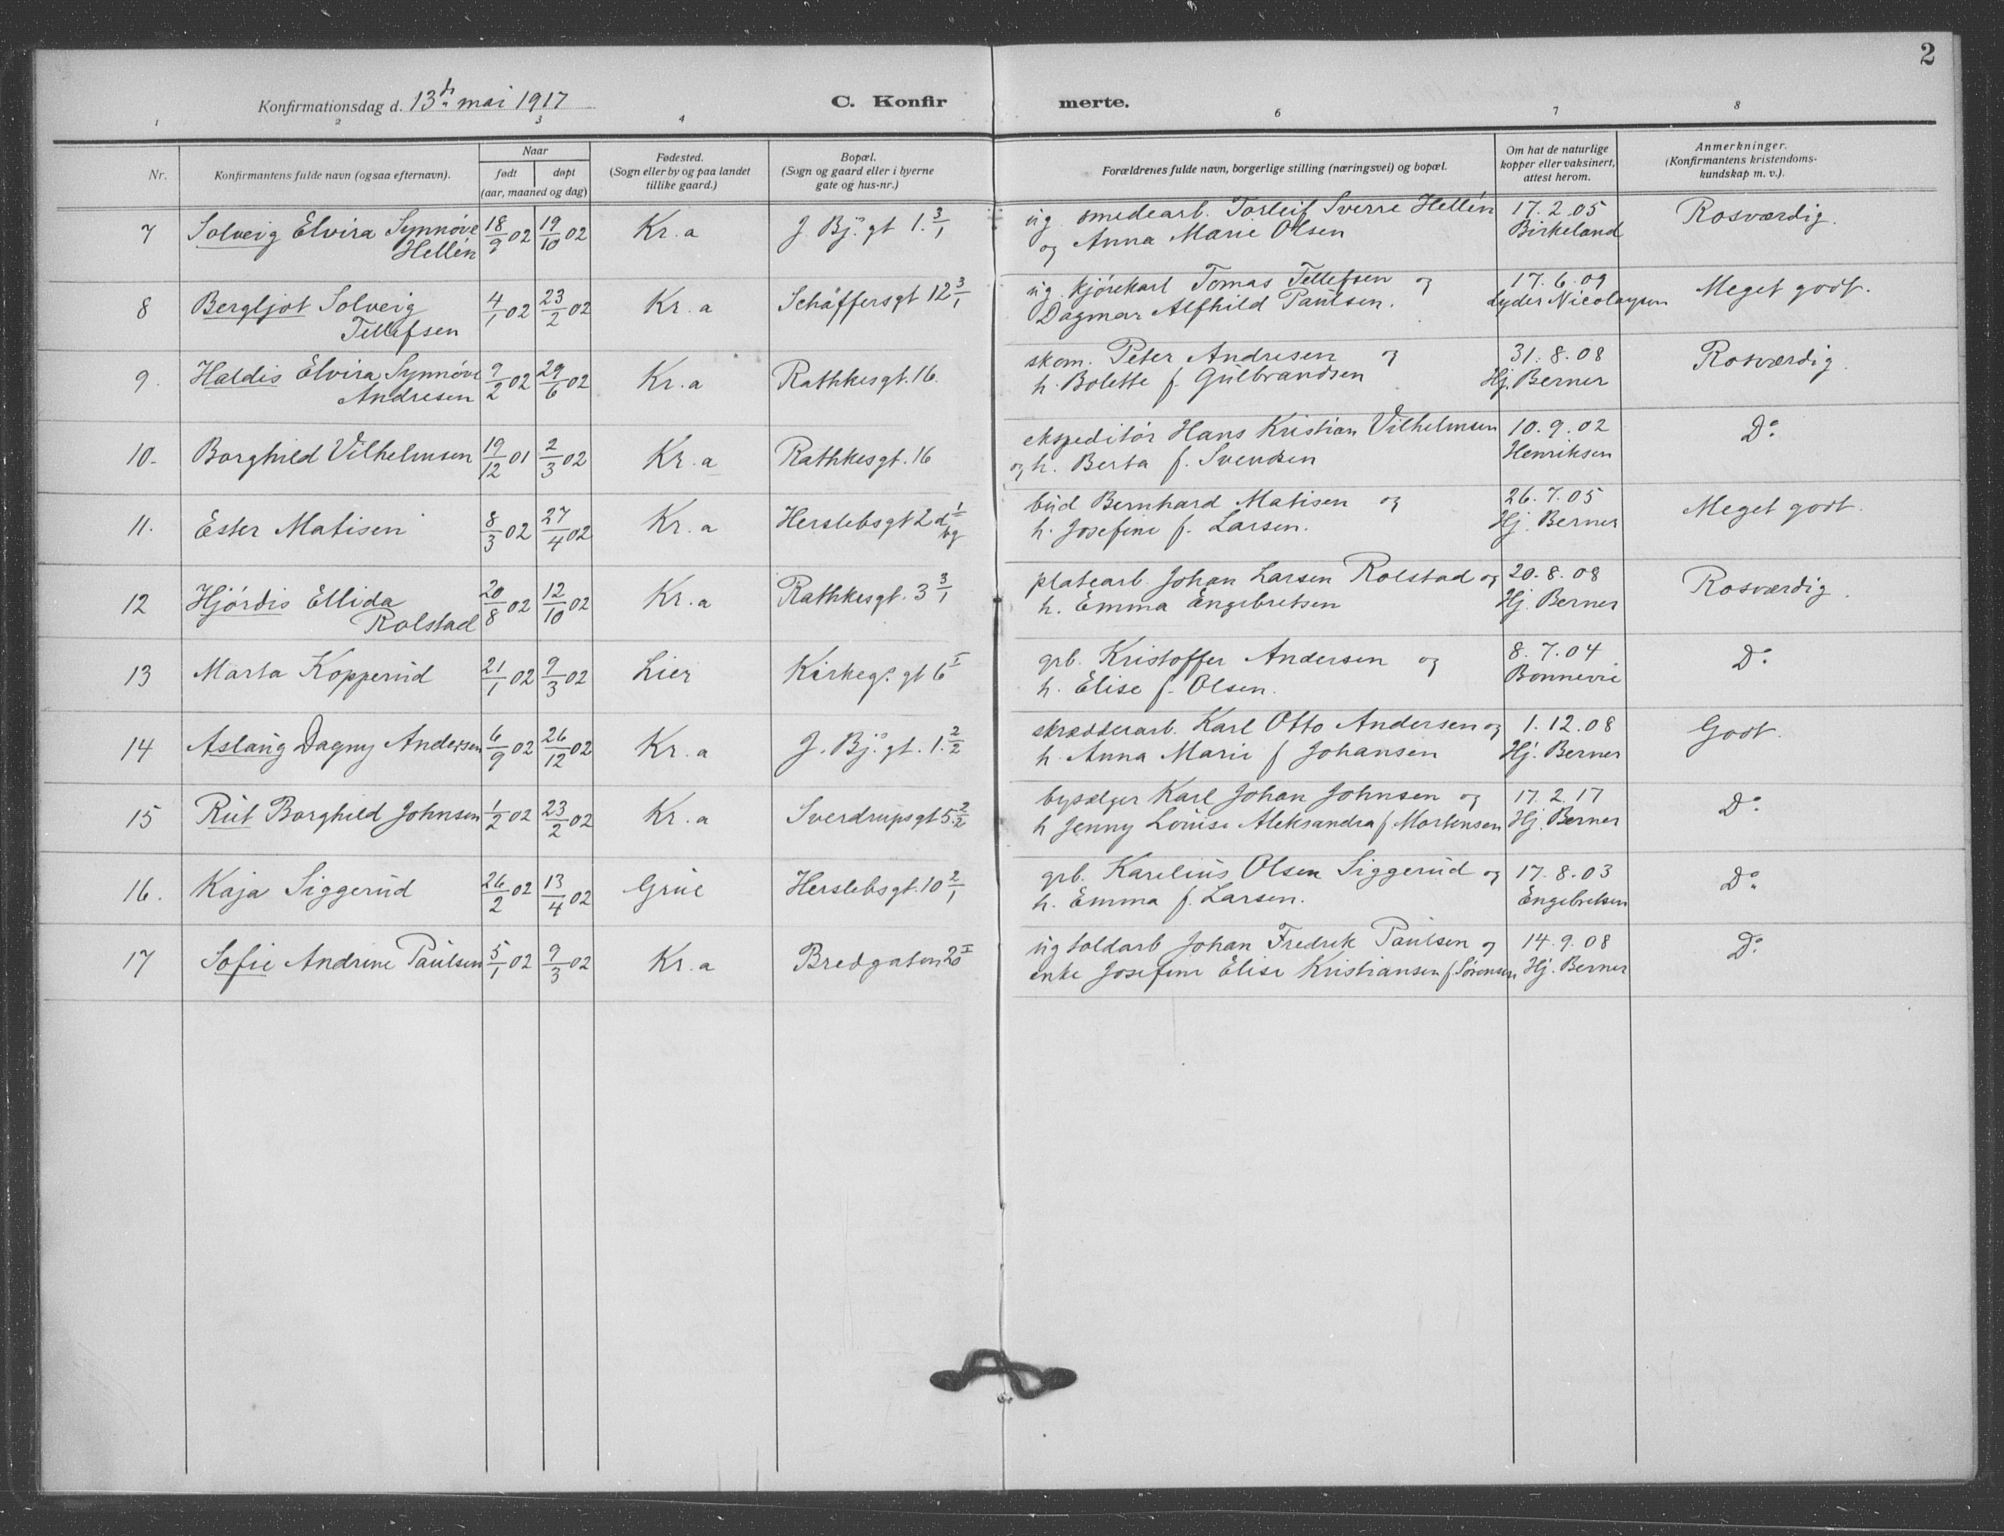 2
Konfirmationsdag d. 13de mai 1917
C. Konfir merte.
1 2 3 4 6 7 8
Nr.
Konfirmantens fulde navn (ogsaa efternavn).
Naar
født
døpt
(aar, maaned og dag)
Fødested.
(Sogn eller by og paa landet
tillike gaard.)
Bopæl.
(Sogn og gaard eller i byerne
gate og hus-nr.)
Forældrenes fulde navn, borgerlige stilling (næringsvei) og bopæl.
Om hat de naturlige
kopper eller vaksinert,
attest herom.
Anmerkninger.
(Konfirmantens kristendoms-
kundskap m. v.).
7 Solveig Elvira Synnøve 18/9 02 19/10 02 Kr.a J. Bj. gt 1. 3/1 ug. smedearb. Torleif Sverre Hellén 17.2.05 Rosværdig.
Hellén og Anna Marie Olsen Birkeland
8 Bergljot Solveig 4/1 02 23/2 02 Kr.a Schäffersgt 12 3/1 ug. kjørekarl Tomas Tellefsen og 17.6.09 Meget godt.
Tellefsen Dagmar Alfhild Paulsen. Lyder Nicolaysen
9. Haldis Elvira Synnøve 9/2 02 29/6 02 Kr.a Rathkesgt. 16. skom. Peter Andresen og 31.8.08 Rosværdig.
Andresen h. Bolette f. Gulbrandsen Hj. Berner
10. Borghild Vilhelmsen 19/12 01 2/3 02 Kr.a Rathkesgt. 16 ekspeditør Hans Kristian Vilhelmsen 10.9.02 Do
og h. Berta f. Svendsen Henriksen
11. Ester Matisen 8/3 02 27/4 02 Kr.a Herslebsgt 2 d 1/bg bud Bernhard Matisen og 26.7.05 Meget godt.
h. Josefine f. Larsen. Hj. Berner
12 Hjørdis Ellida 20/8 02 12/10 02 Kr.a Rathkesgt. 3 3/1 platearb. Johan Larsen Rolstad og 20.8.08 Rosværdig.
Rolstad h. Emma Engebretsen Hj. Berner
13 Marta Kopperud 21/1 02 9/3 02 Lier Kirkeg. gt 6 I grb. Kristoffer Andersen og 8.7.04 Do
h. Elise f. Olsen. Bonnevie
14 Aslaug Dagny Andersen 6/9 02 26/12 02 Kr.a J. Bj. gt. 1. 2/2 skrædderarb. Karl Otto Andersen og 1.12.08 Godt.
h. Anna Marie f Johansen Hj. Berner
15 Rut Borghild Johnsen 1/2 02 23/2 02 Kr.a Sverdrupsgt 5. 2/2 bysælger Karl Johan Johnsen og 17.2.17 Do
h Jenny Louise Aleksandra f Mortensen Hj. Berner
16. Kaja Siggerud 26/2 02 13/4 02 Grue Herslebsgt. 10 2/1 grb. Karelius Olsen Siggerud og 17.8.03 Do
h. Emma f. Larsen. Engebretsen
17 Sofie Andrine Paulsen 5/1 02 9/3 02 Kr.a Bredgaten 20 I ug toldarb Johan Fredrik Paulsen og 14.9.08 Do
enke Josefine Elise Kristiansen f Sørensen Hj. Berner